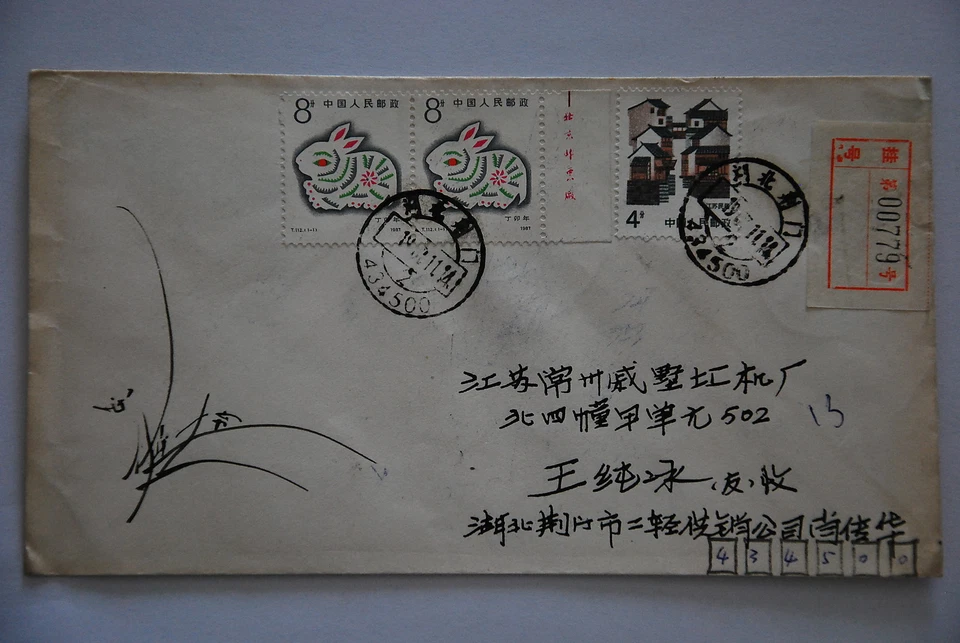 8分 中国人民邮政
丁卯年
T.112.(1-1) 1987
8分 中国人民邮政
丁卯年
T.112.(1-1) 1987
江苏民居
4分 中国人民邮政
湖北荆门
434500
湖北荆门
434500
挂号
第007779号
江苏常州戚墅堰机厂
北四幢甲单元502
王纯冰(友)收
湖北荆门市二轻供销公司肖传华
434500